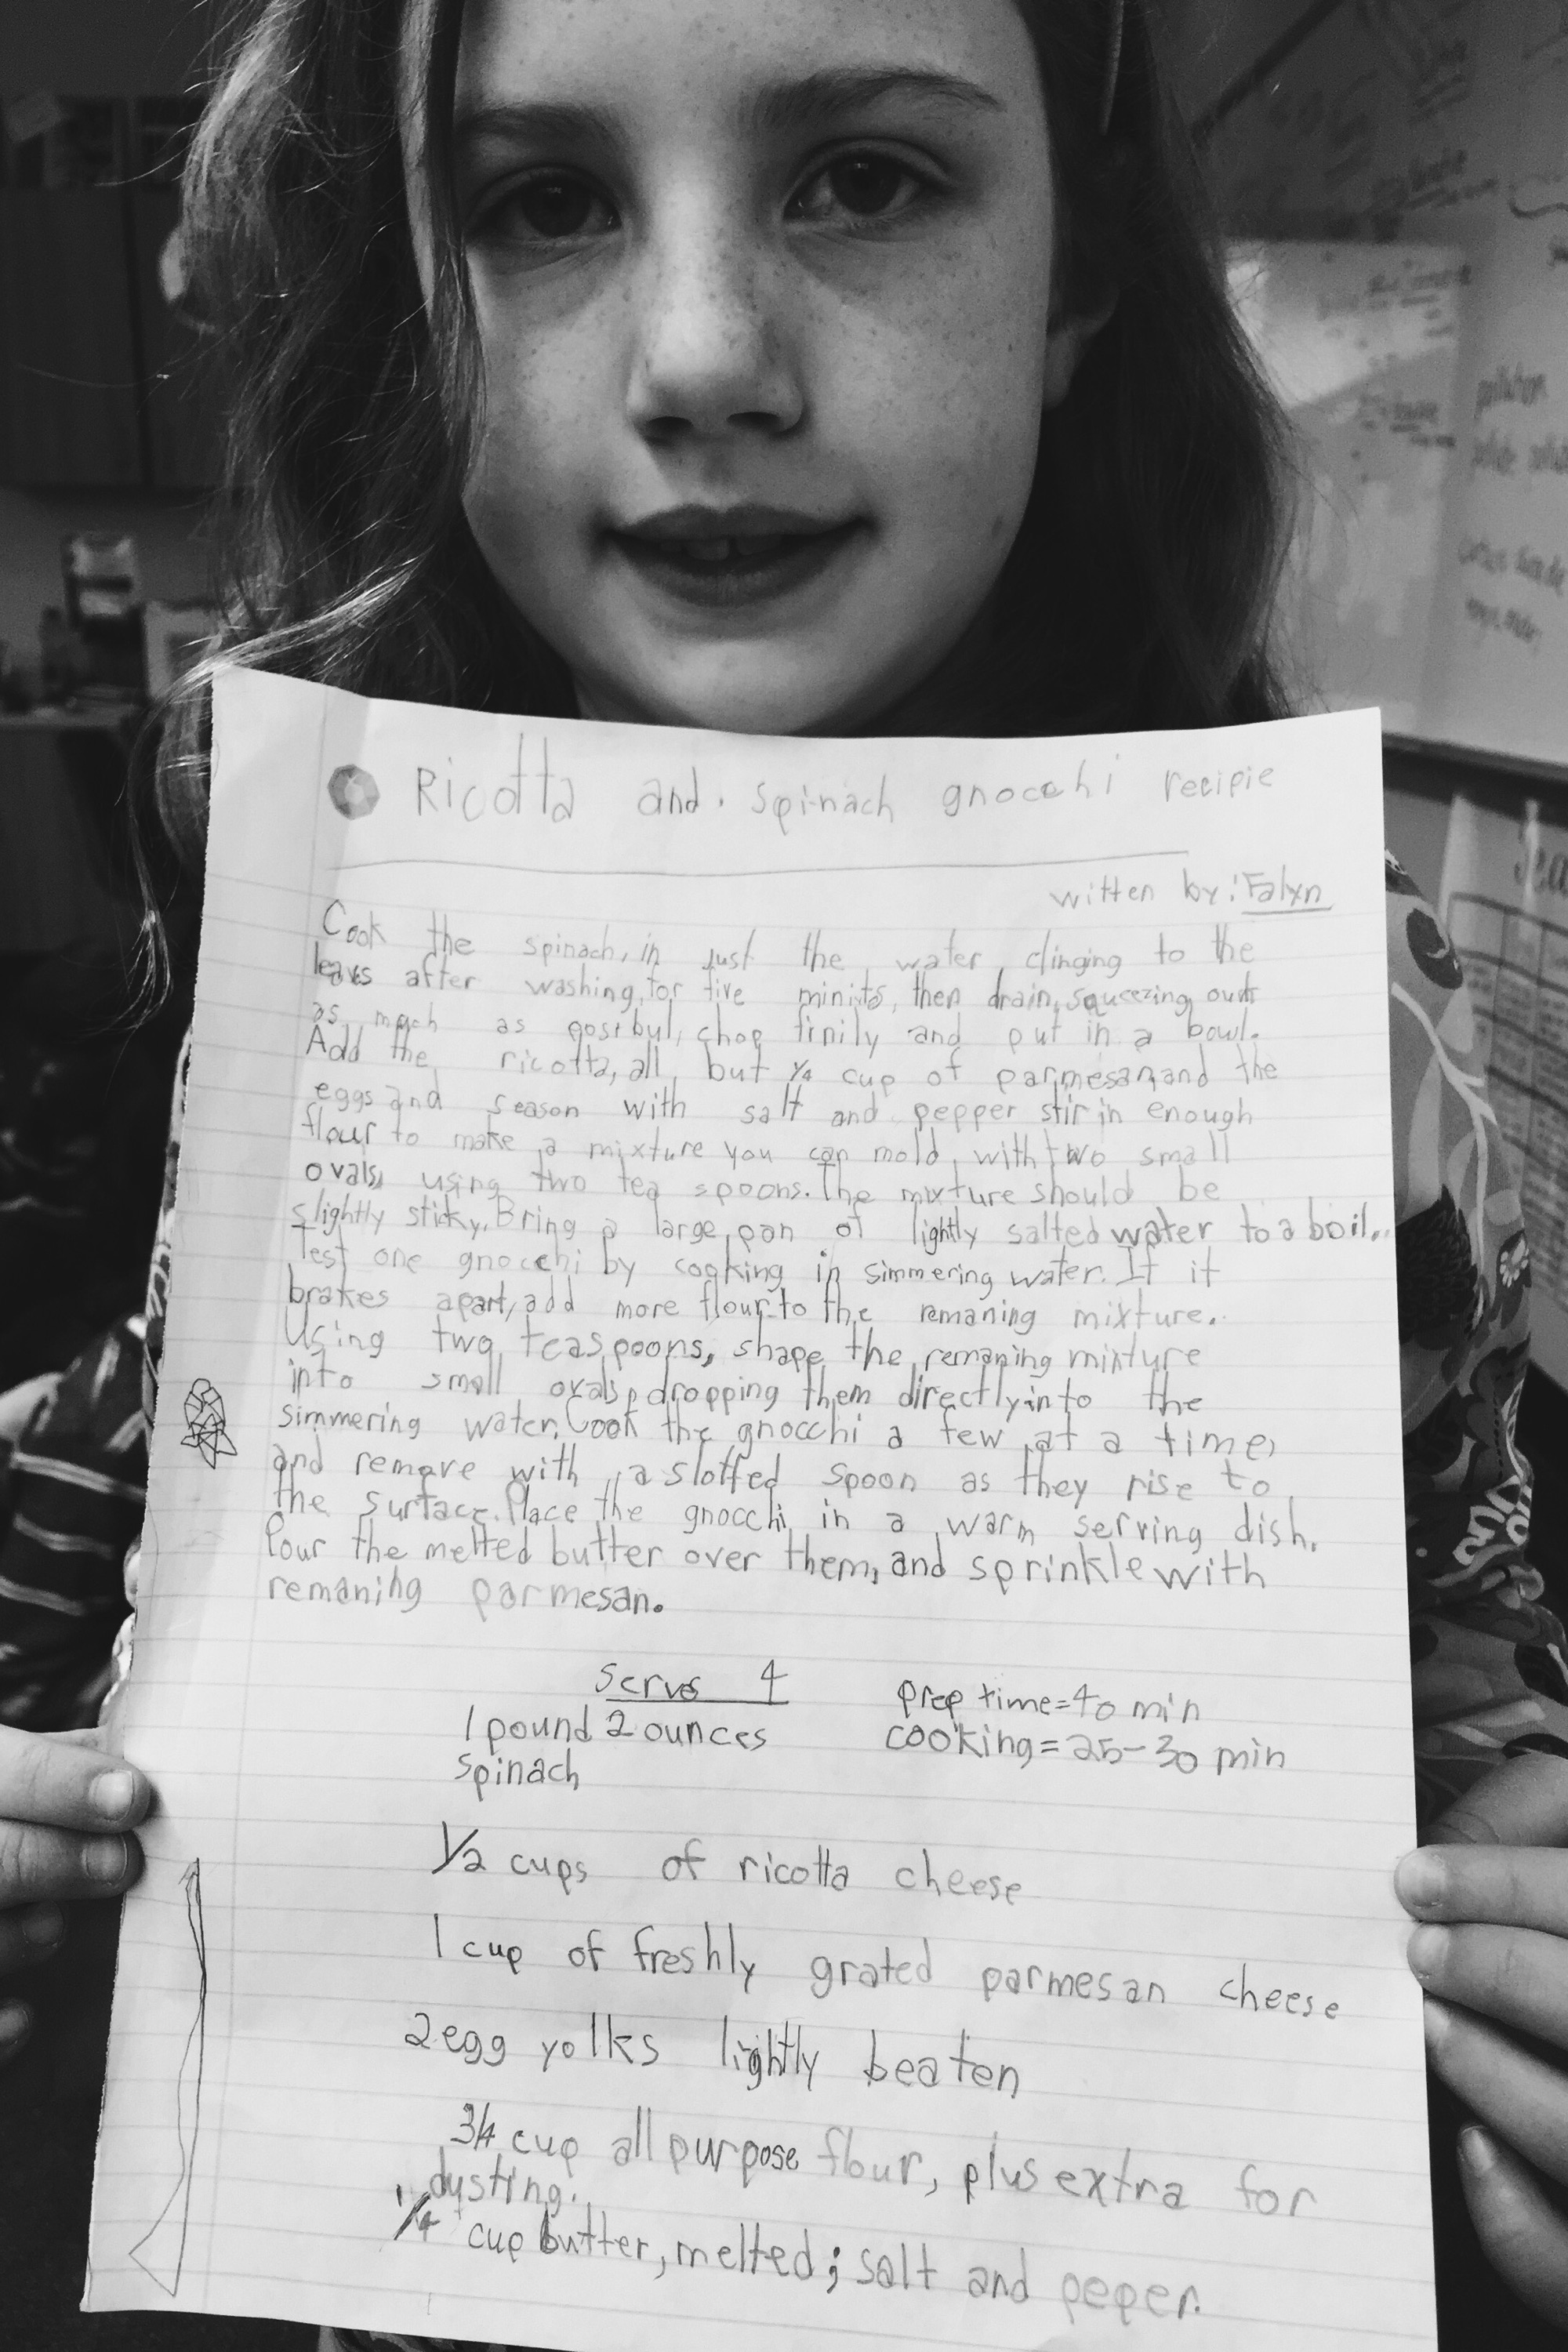 Ricotta and spinach gnocchi recipie
written by: Falyn
Cook the spinach, in just the water clinging to the
leavs after washing, for five minits, then drain, squeezing out
as much as posibul, chop finily and put in a bowl.
Add the ricotta, all but 1/4 cup of parmesan, and the
eggs and season with salt and pepper stir in enough
flour to make a mixture you can mold with two small
ovals, using two tea spoons. The mixture should be
slightly sticky. Bring a large pan of lightly salted water to a boil.
Test one gnocchi by cooking in simmering water. If it
brakes apart, add more flour to the remaning mixture.
Using two teaspoons, shape the remaning mixture
into small ovals, dropping them directly into the
simmering water. Cook the gnocchi a few at a time,
and remove with a slotted spoon as they rise to
the surface. Place the gnocchi in a warm serving dish.
Pour the melted butter over them, and sprinkle with
remaning parmesan.
serves 4
prep time=40 min
1 pound 2 ounces
cooking=25-30 min
spinach
1/2 cups of ricotta cheese
1 cup of freshly grated parmesan cheese
2 egg yolks lightly beaten
3/4 cup all purpose flour, plus extra for
dusting.
1/4 cup butter, melted; salt and peper.